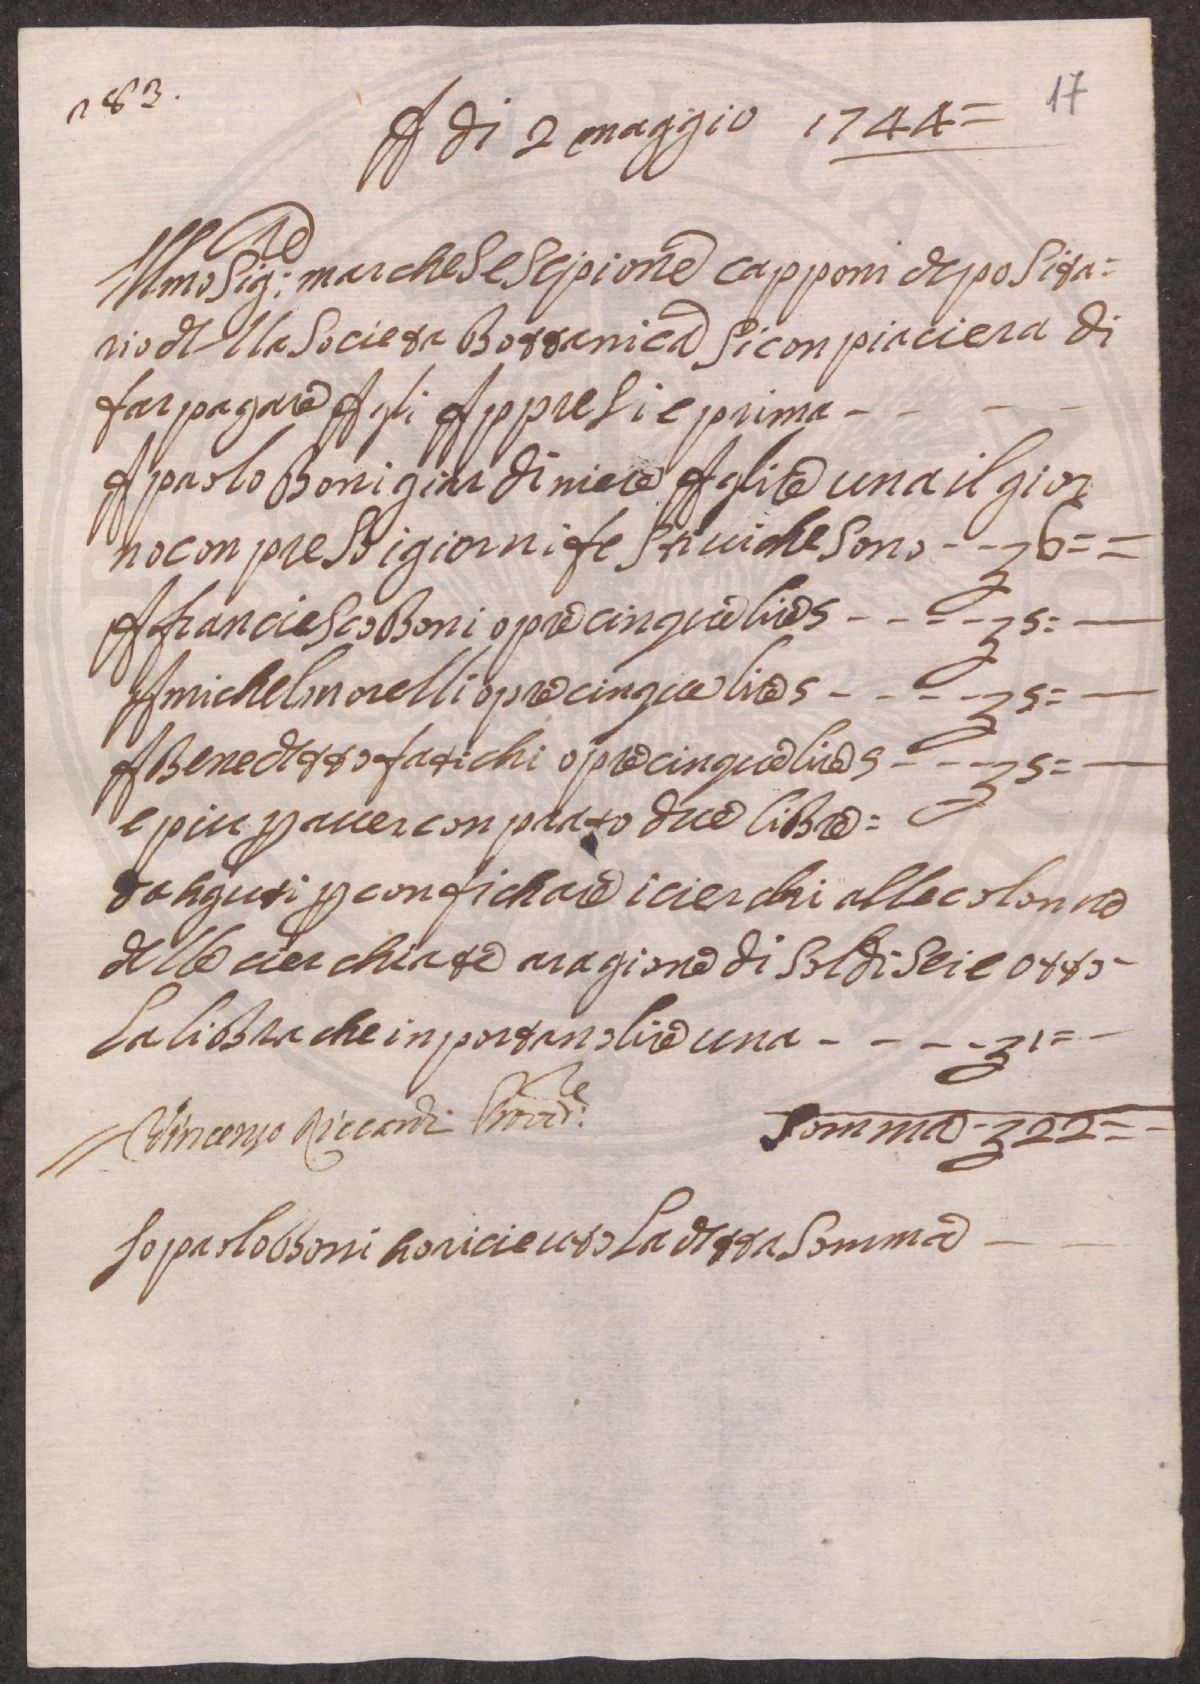 283.
17
A di 2 maggio 1744=
Illmo Sig:re marchese Scipione capponi deposita=
rio della Societa Bottanica Si conpiaciera di
far pagare A gli Appresi e prima - - - -
A paolo Boni giardiniere A lire una il gior
no conpreso i giorni festivi che Sono - - 6= =
A franciesco Boni opre cinque lire 5 - - - - 5: —
A michel morelli opre cinque lire 5 - - - - 5= —
A Benedetto fatichi opre cinque lire 5 - - - 5= —
e piu p aver conprato due libre =
di aguti p confichare i cierchi alle colonne
delle cierchiate aragione di Soldi Sei e otto -
La libra che inportano lire una - - - - 1= -
Vincenzo Riccardi Provved:re
Somma - 22= -
Io paolo Boni ho ricieuto La detta Somma — —